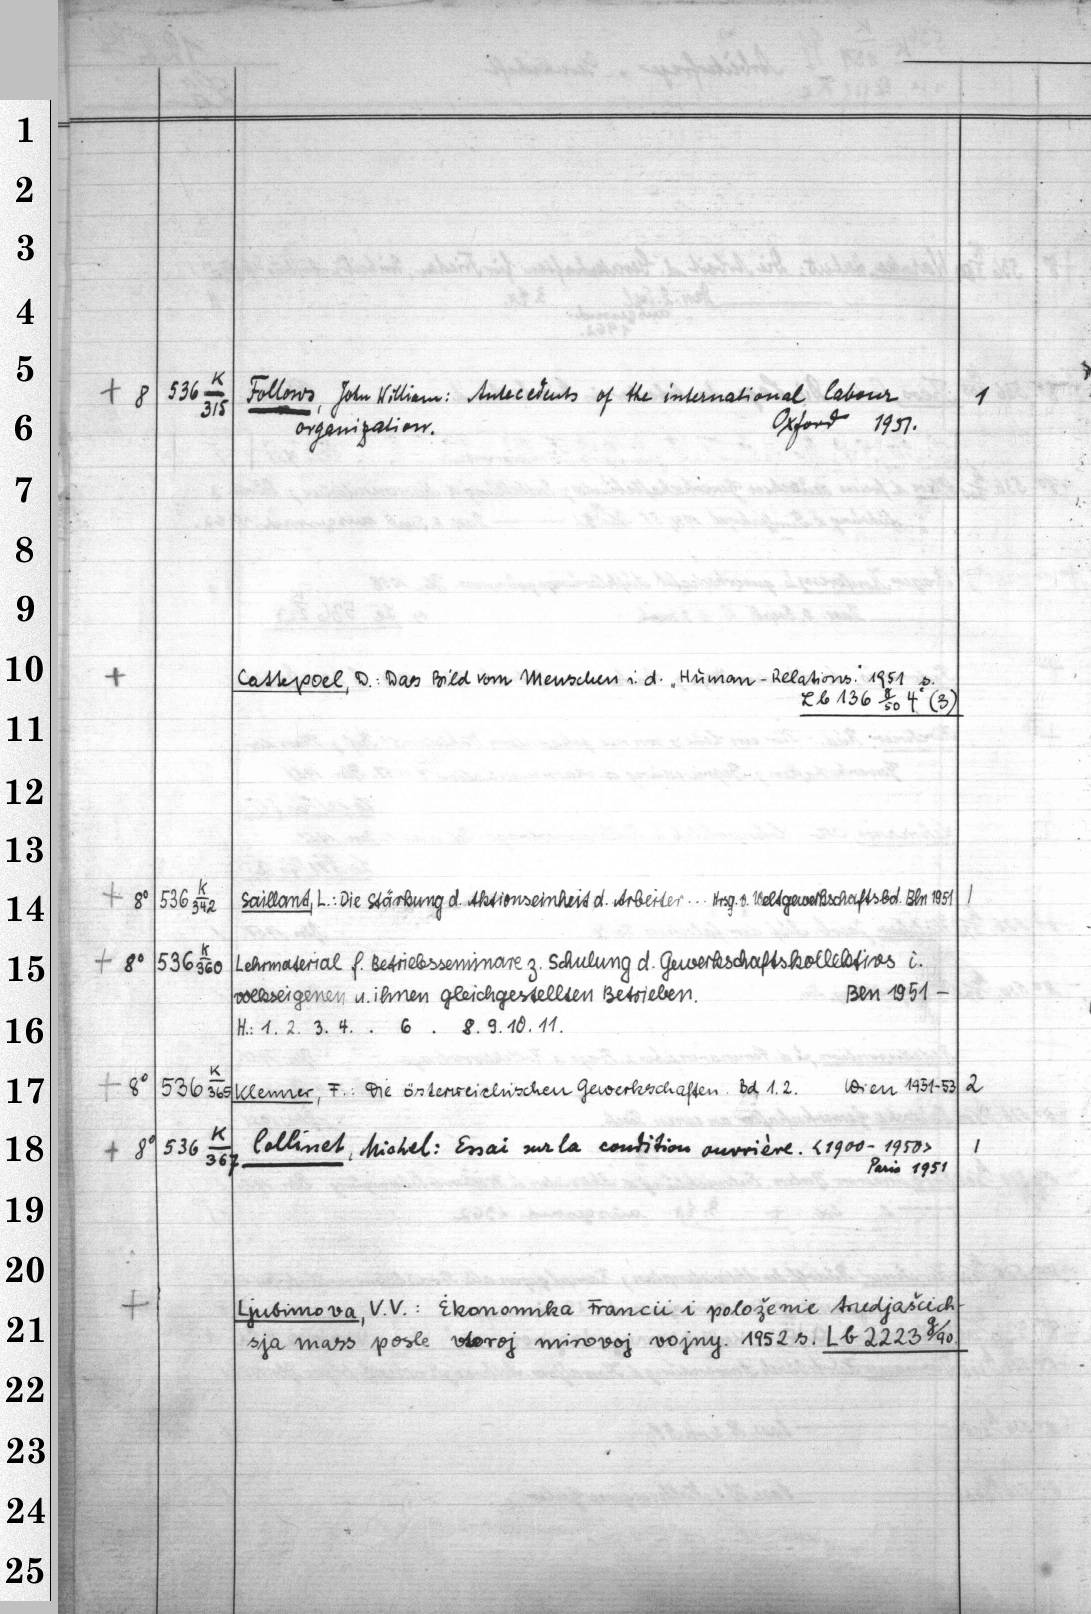 1
2
3
4
5
+ 8 536 K/315 Follows, John William: Antecedents of the international labour 1
6
organization. Oxford 1951.
7
8
9
10
+ Cattepoel, D.: Das Bild vom Menschen i. d. „Human-Relations." 1951 s.
Lb 136 g/50 4° (3)
11
12
13
14
+ 8° 536 K/342 Saillant, L.: Die Stärkung d. Aktionseinheit d. Arbeiter... Hrsg. v. Weltgewerkschaftsbd. Bln 1951 1
15
+ 8° 536 K/360 Lehrmaterial f. Betriebsseminare z. Schulung d. Gewerkschaftskollektivs i.
volkseigenen u. ihnen gleichgestellten Betrieben. Bln 1951 –
16
H.: 1. 2. 3. 4. . 6 . 8. 9. 10. 11.
17
+ 8° 536 K/365 Klenner, F.: Die österreichischen Gewerkschaften. Bd 1. 2. Wien 1951-53 2
18
+ 8° 536 K/367 Collinet, Michel: Essai sur la condition ouvrière. <1900-1950> 1
Paris 1951
19
20
+ Ljubimova, V.V.: Ėkonomika Francii i položenie trudjaščich-
21
sja mass posle vtoroj mirovoj vojny. 1952 s. Lb 2223 g/90.
22
23
24
25